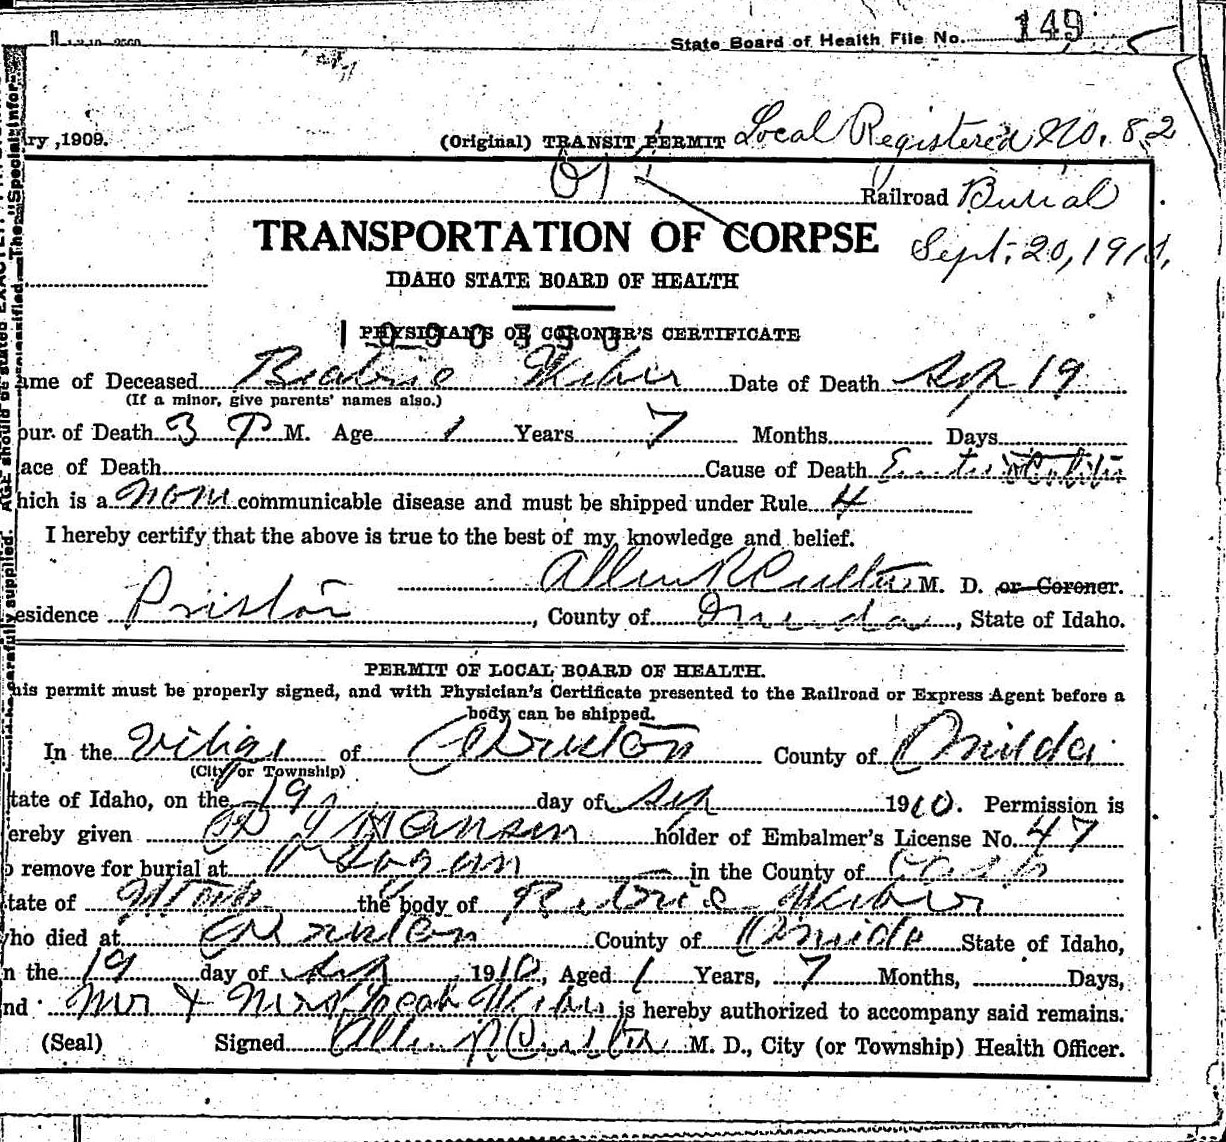 State Board of Health File No. 149
ry, 1909.
(Original) TRANSIT PERMIT Local Registered No. 82
of
Railroad Burial
TRANSPORTATION OF CORPSE
Sept. 20, 191
IDAHO STATE BOARD OF HEALTH
PHYSICIAN'S OR CORONER'S CERTIFICATE
ame of Deceased Beatrice Weber Date of Death Sep 19
(If a minor, give parents' names also.)
our of Death 3 P M. Age 1 Years 7 Months Days
ace of Death Cause of Death
hich is a non communicable disease and must be shipped under Rule 4
I hereby certify that the above is true to the best of my knowledge and belief.
Allen R Cutler M. D. or Coroner.
esidence Preston, County of Oneida, State of Idaho.
PERMIT OF LOCAL BOARD OF HEALTH.
his permit must be properly signed, and with Physician's Certificate presented to the Railroad or Express Agent before a
body can be shipped.
In the Village of Preston County of Oneida
(City or Township)
tate of Idaho, on the 19 day of Sep 1910. Permission is
ereby given Hansen holder of Embalmer's License No. 47
o remove for burial at Logan in the County of Cash
tate of Utah the body of Betrice Weber
ho died at Preston County of Oneida State of Idaho,
n the 19 day of Sep 1910, Aged 1 Years, 7 Months, Days,
nd Mr & Mrs Weber is hereby authorized to accompany said remains.
(Seal) Signed Allen R Cutler M. D., City (or Township) Health Officer.